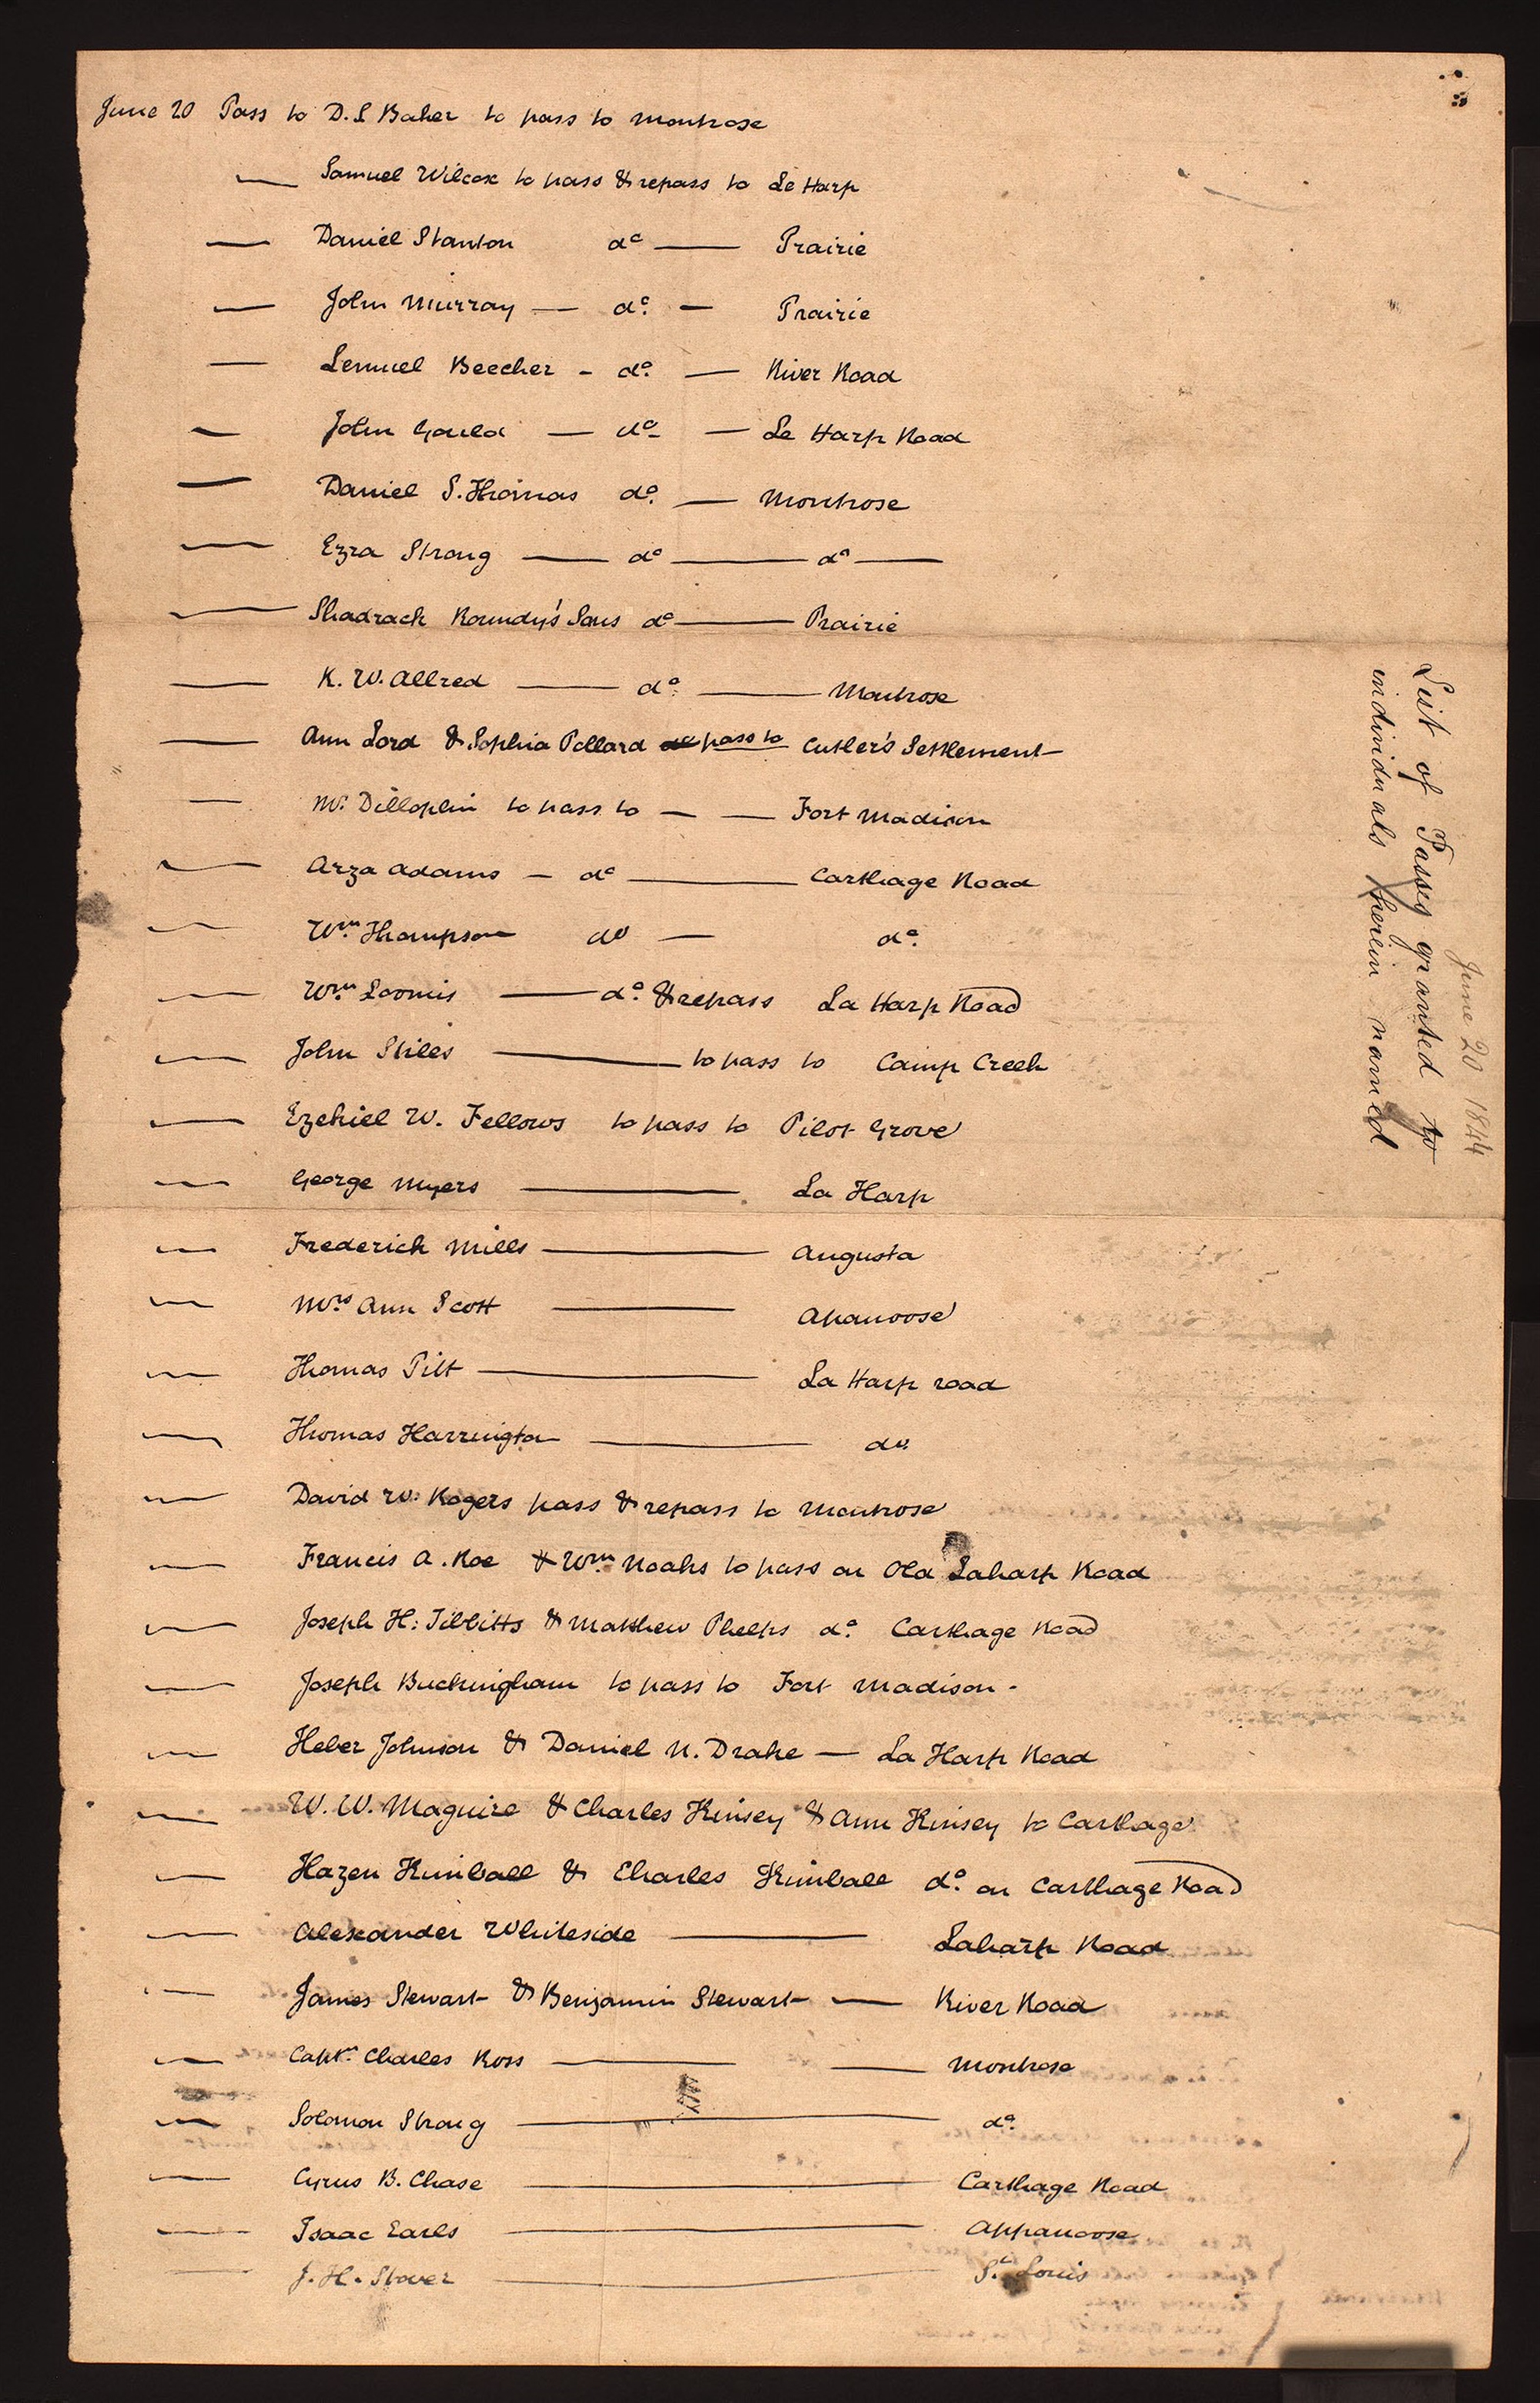 June 20 Pass to D. S Baker to pass to Montrose
— Samuel Wilcox to pass & repass to Le Harp
— Daniel Stanton do — Prairie
— John Murray — do. — Prairie
— Lemuel Beecher - do. — River Road
— John Gould — do — Le Harp Road
— Daniel S. Thomas do. — Montrose
— Ezra Strong — do — do —
— Shadrach Roundy's Sons do — Prairie
— K. W. Allred — do. — Montrose
— Ann Lord & Sophia Pollard do pass to Cutler's Settlement
— Mr. Dilloplin to pass to — — Fort Madison
— Arza Adams — do — Carthage Road
— Wm. Thompson do — do.
— Wm. Loomis — do. & repass La Harp Road
— John Stiles — to pass to Camp Creek
— Ezekiel W. Fellows to pass to Pilot Grove
— George Myers — La Harp
— Frederick Mills — Augusta
— Mrs Ann Scott — Apanoose
— Thomas Pitt — La Harp road
— Thomas Harrington — do.
— David W. Rogers pass & repass to Montrose
— Francis A. Roe & Wm. Noaks to pass on Old Laharp Road
— Joseph H: Tibbitts & Matthew Phelps do. Carthage Road
— Joseph Buckingham to pass to Fort Madison -
— Heber Johnson & Daniel N. Drake — La Harp Road
— W. W. Maguire & Charles Kinsey & Ann Kinsey to Carthage
— Hazen Kimball & Charles Kimball do. on Carthage Road
— Alexander Whiteside — Laharp Road
— James Stewart & Benjamin Stewart — River Road
— Captn. Charles Ross — — Montrose
— Solomon Strong — do.
— Cyrus B. Chase — Carthage Road
— Isaac Earls — Appanoose
— J. H. Stover — St. Louis
June 20 1844
List of Passes granted to
individuals herein named